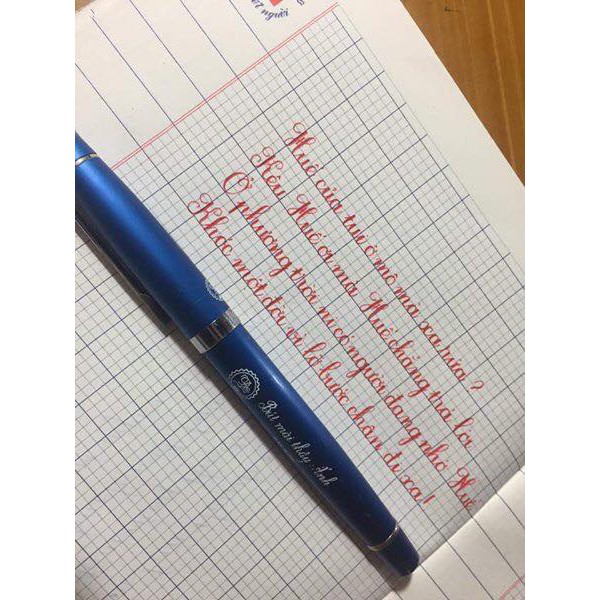 67 người
Huế của tui ở mô mà xa rứa?
Kêu Huế ơi mà Huế chẳng trả lời
Ở phương trời ni có người đang nhớ Huế
Khóc một đời vì lỡ bước chân đi xa!
Bút mài thầy Ánh